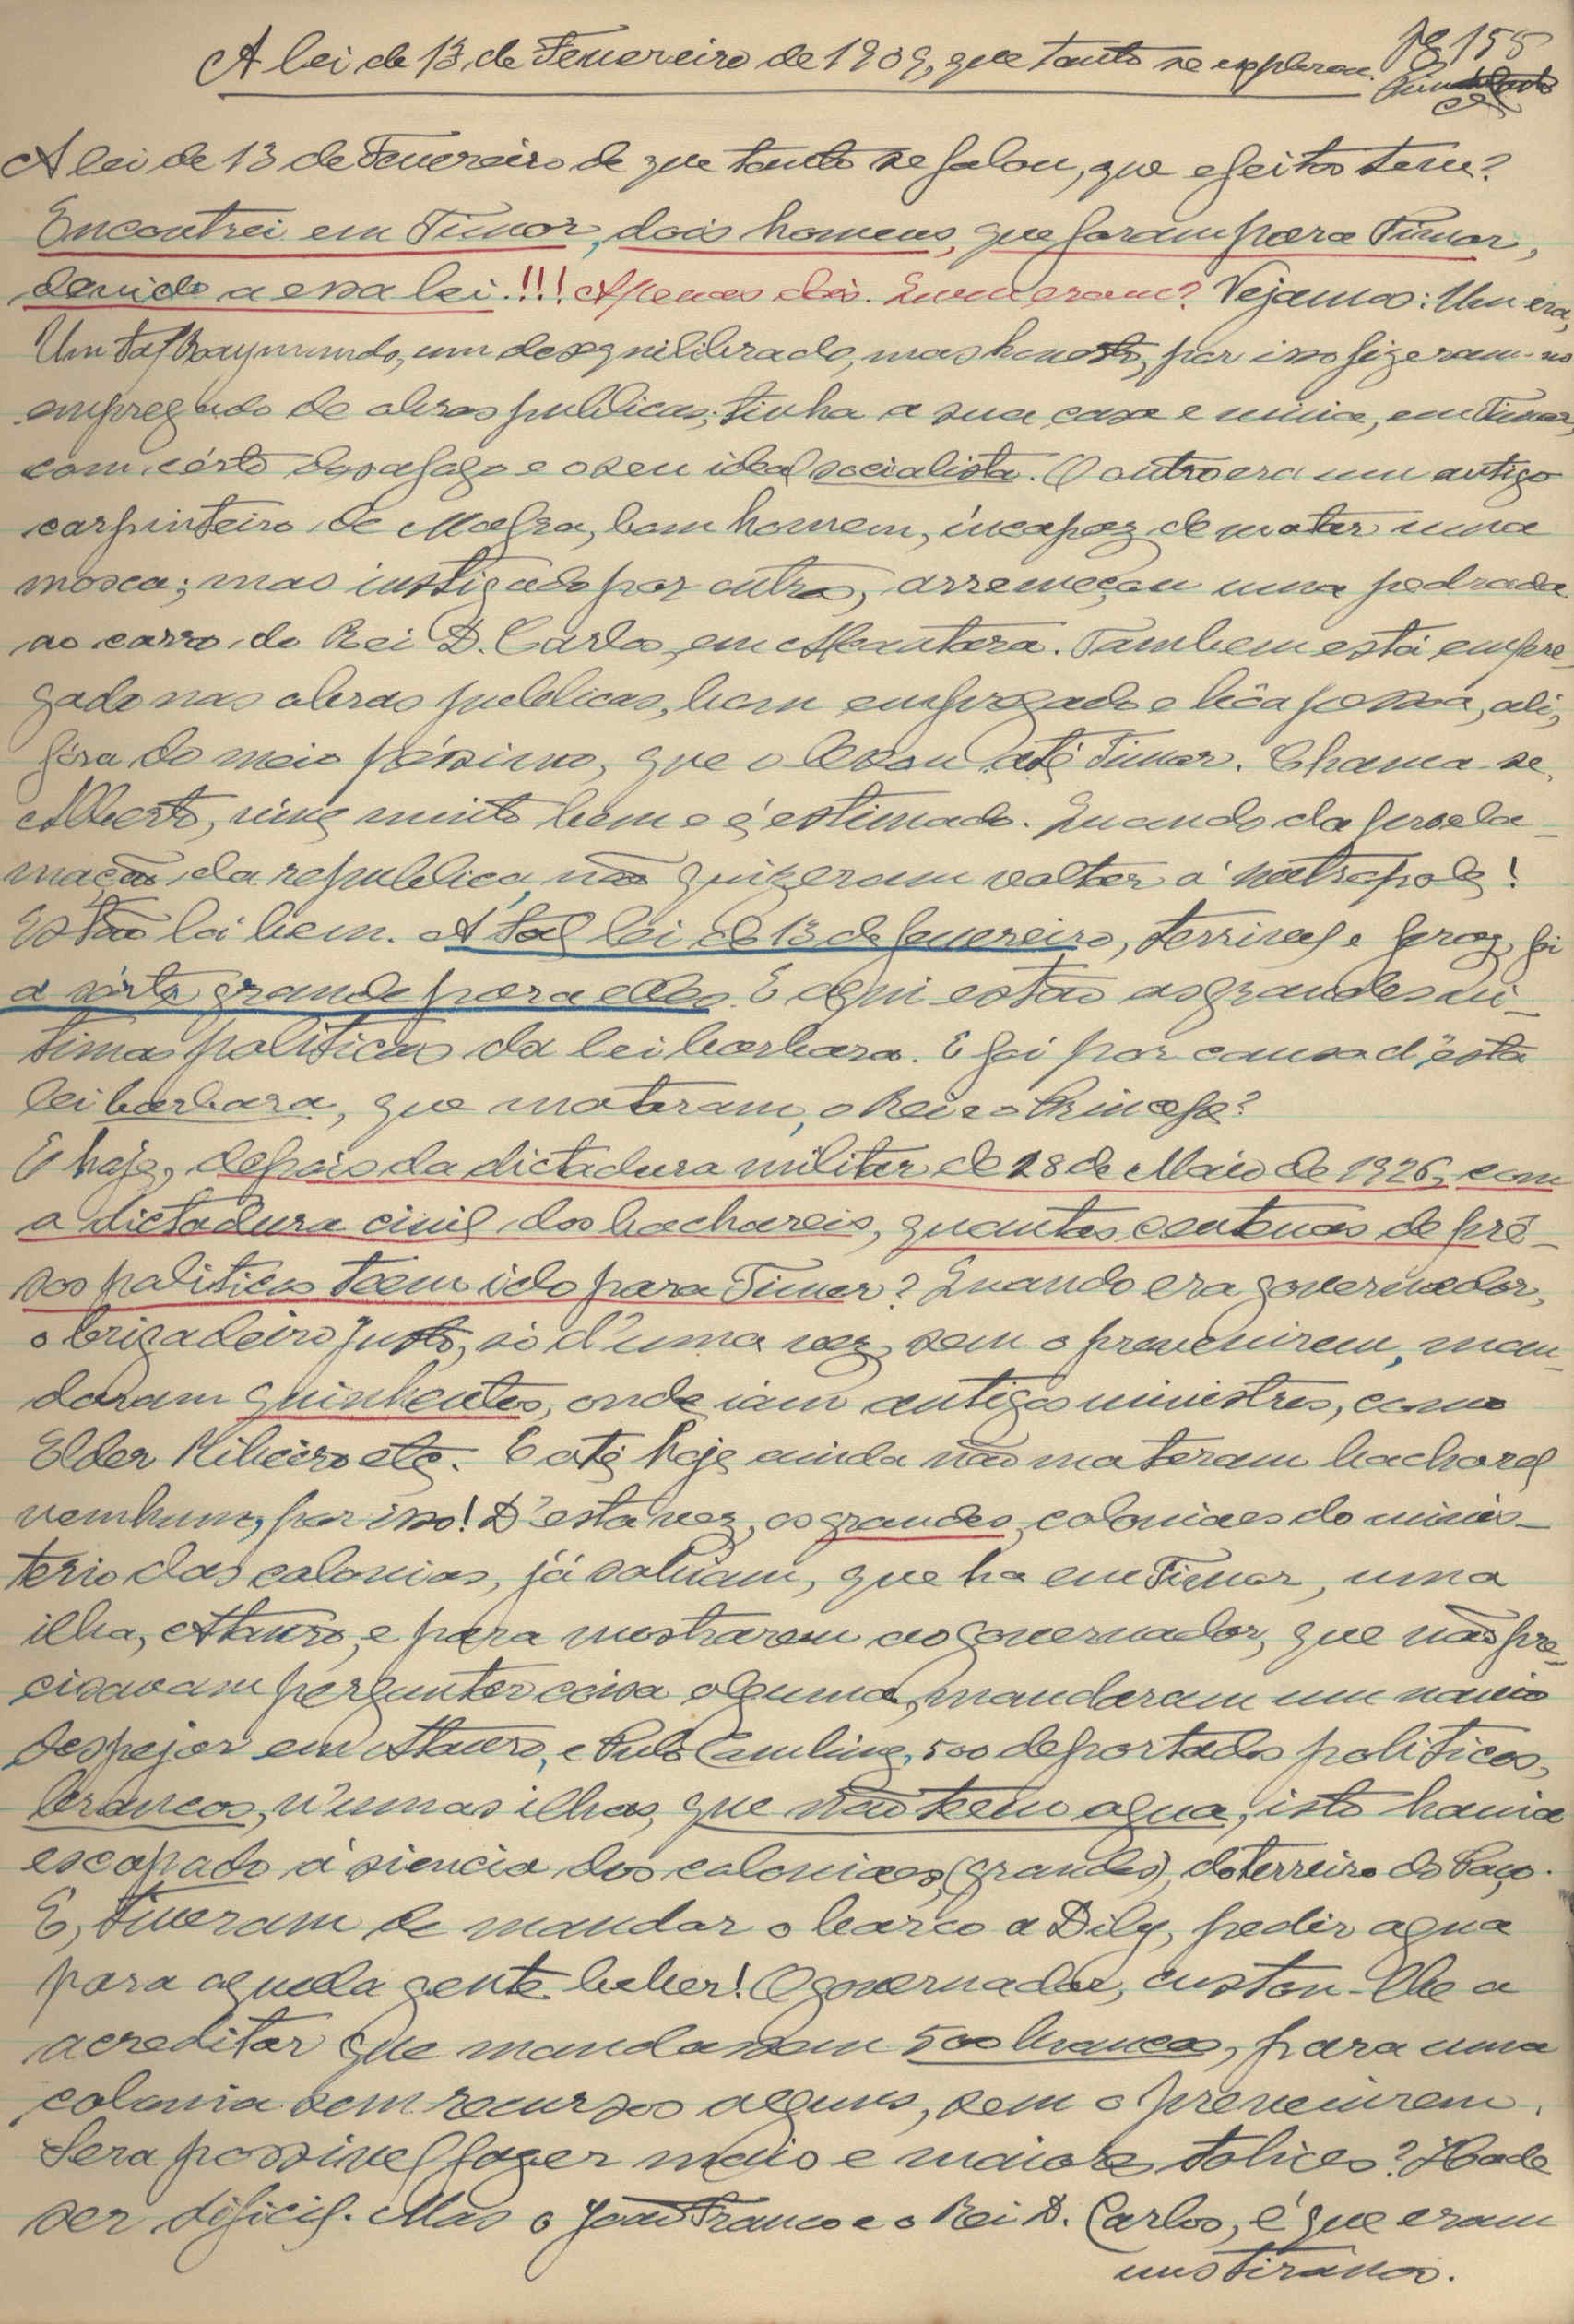 A lei de 13 de Fevereiro de 1909, que tanto se explorou. Pg 155
A lei de 13 de Fevereiro de que tanto se falou, que efeitos teve?
Encontrei em Timor, dois homens, que foram para Timor,
devido a essa lei.!!! Apenas dois. Quem eram? Vejamos: Um era,
Um tal Raymundo, um desequilibrado, mas honesto, por isso fizeram-no
empregado de obras publicas; tinha a sua casa e vivia, em Timor,
com cérto desafogo e o seu ideal socialista. O outro era um antigo
carpinteiro de Mafra, bom homem, incapaz de matar uma
mosca; mas instigado por outros, arremeçou uma pedrada
ao carro do Rei D. Carlos, em Alcantara. Tambem está empre-
gado nas obras publicas, bom empregado e bôa pessoa, ali,
fóra do meio péssimo, que o levou até Timor. Chama-se,
Alberto, vive muito bem e é estimado. Quando da procla-
mação da republica, não quizeram voltar á metropole!
Estão lá bem. A tal lei de 13 de fevereiro, terrivel e feroz, foi
a sórte grande para elles. E aqui estão as grandes vi-
timas politicas da lei barbara. E foi por causa d'esta
lei barbara, que mataram, o Rei e o Principe?
E hoje, depois da dictadura militar de 28 de Maio de 1926, com
a dictadura civil dos bachareis, quantas centenas de pré-
sos politicos teem ido para Timor? Quando era governador,
o brigadeiro Justo, só d'uma vez, sem o prevenirem, man-
daram quinhentos, onde iam antigos ministros, como
Elder Ribeiro etc. E até hoje ainda não mataram bacharel
nenhum, por isso! D'esta vez, os grandes, coloniaes do minis-
terio das colonias, já sabiam, que ha em Timor, uma
ilha, Atauro, e para mostrarem ao governador, que não pre-
cisavam perguntar coisa alguma, mandaram um navio
despejar em Atauro, e Pulo Cambing, 500 deportados politicos,
brancos, n'umas ilhas, que não teem agua, isto havia
escapado á siencia dos coloniaes, (grandes), do terreiro do Paço.
E, tiveram de mandar o barco a Dily, pedir agua
para aquela gente beber! O governador, custou-lhe a
acreditar que mandassem 500 brancos, para uma
colonia sem recursos alguns, sem o prevenirem.
Sera possivel fazer mais e maiores tolices? Hade
ser dificil. Mas o João Franco e o Rei D. Carlos, é que eram
uns tiranos.